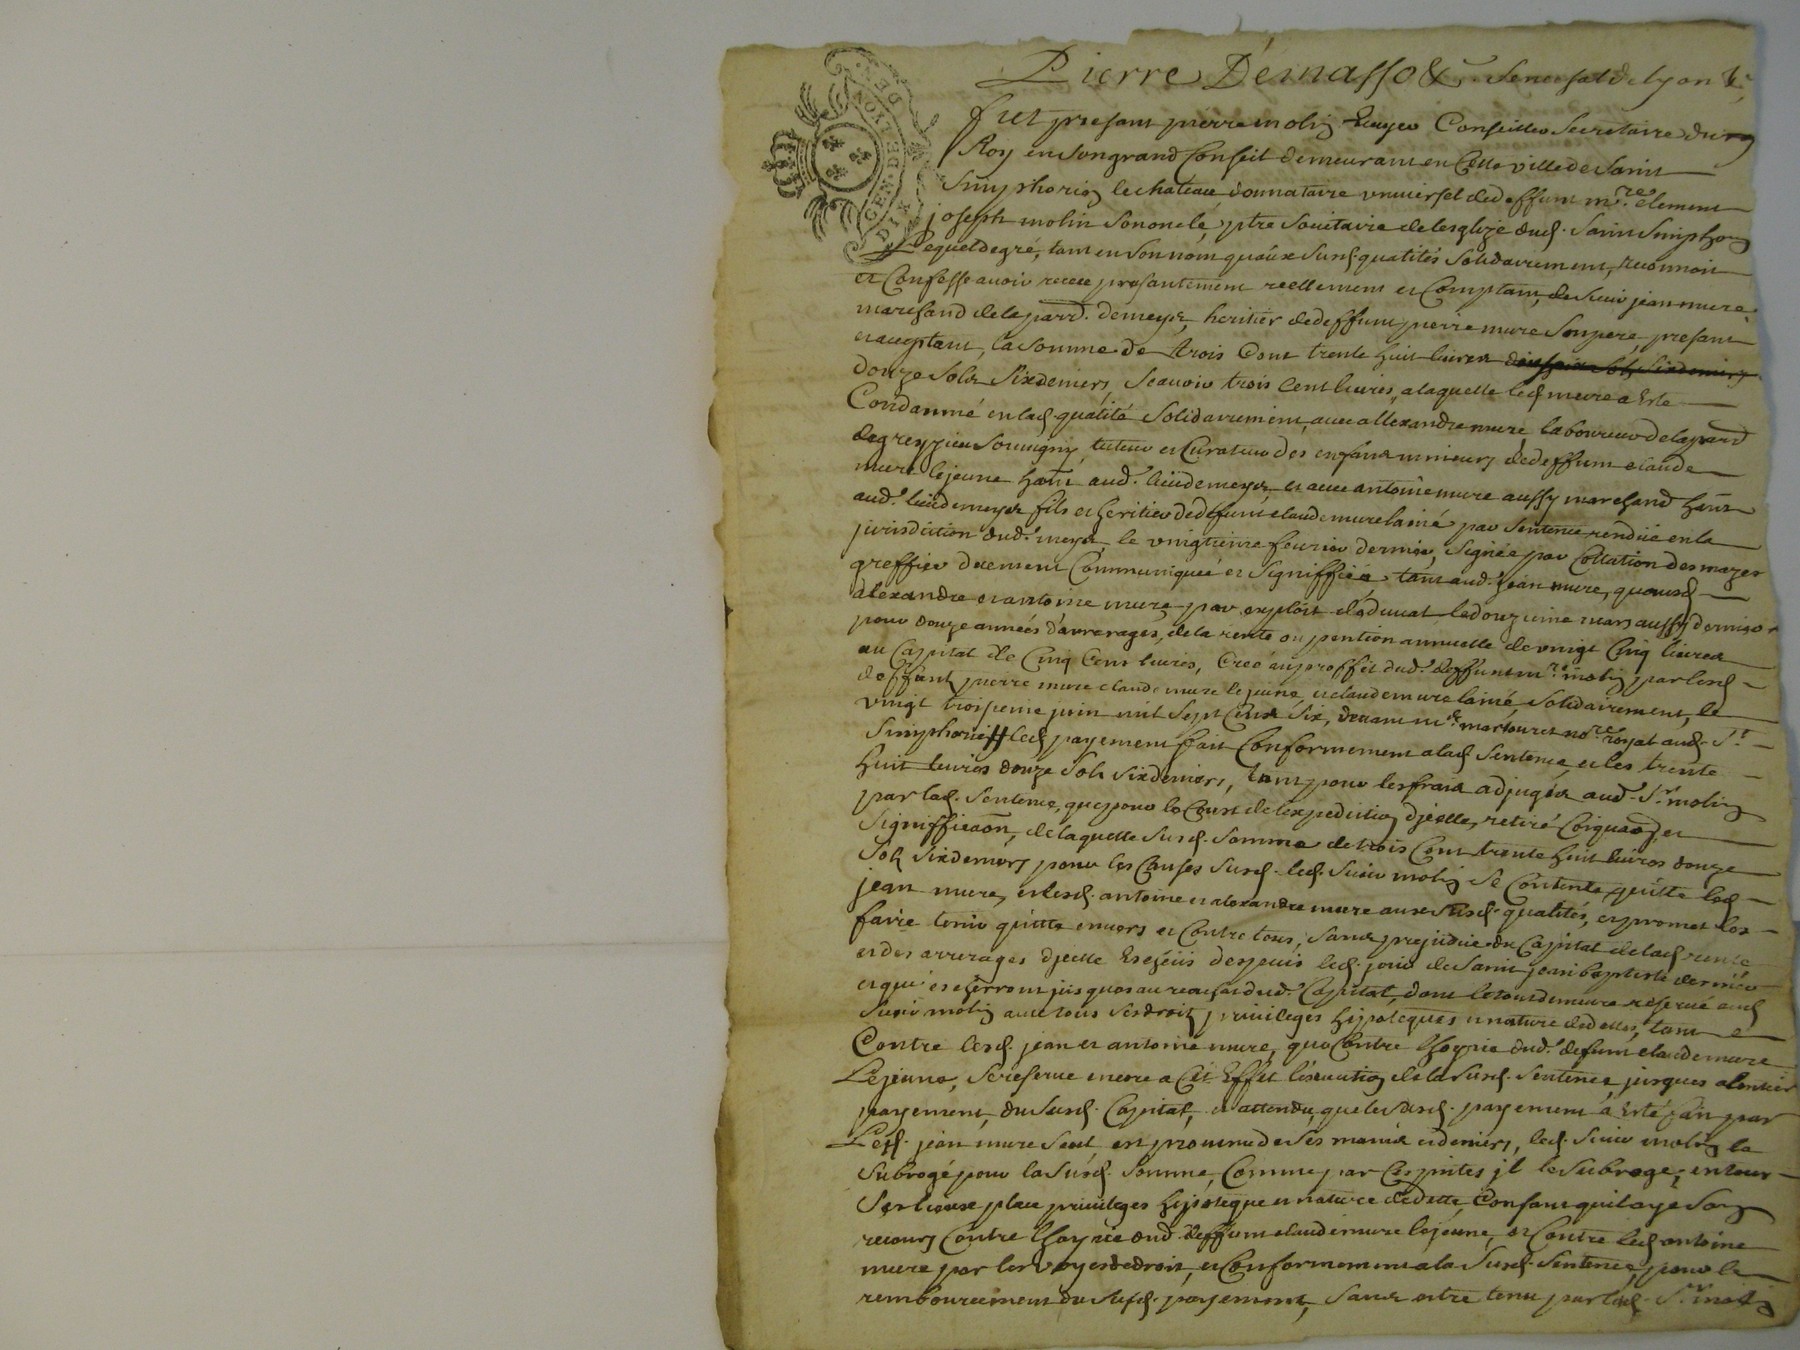 Pierre Démasso & Senechal de lyon &c
fut presant pierre molin Ecuyer Conseiller Secretaire du
Roy en son grand Conseil demeurant en Cette ville de Saint
Simphorien le chateau, donnataire universel de deffunt mre. clement
joseph molin son oncle, ptre societaire de lesglize dud. Saint Simphorien
Lequel de gré, tant en son nom quaux susd. qualités solidairement, reconnoit
et Confesse avoir receu presantement reellement et Comptant, de sieur jean mure
marchand de la parr. de meys, heritier de deffunt pierre mure son pere, presant
et aceptant, la somme de trois Cent trente huit livres
douze sols six deniers, scavoir trois Cent livres, a laquelle led. mure a Esté
Condamné en lad. qualité solidairement, avec allexandre mure, laboureur de la parr.
de greyzieu souvigny, tuteur et Curateur des enfans mineurs de deffunt claude
mure le jeune hant. aud. lieu de meys, et avec antoine mure aussy marchand hant.
aud. lieu de meys fils et heritier de defunt claude mure laîné par Sentence rendüe en la
jurisdiction dud. meys le vingtieme fevrier dernier, signée par Collation desmazes
greffier deuement Communiquée et signiffiée, tant aud. jean mure, quausd.
alexandre et antoine mure, par exploit de duvat le douzieme mars aussy dernier
pour douze années d'arrerages, de la rente ou pention annuelle de vingt Cinq livres
au Capital de Cinq Cent livres, Creé au proffit dud. deffunt mre. molin, par lesd.
deffunts pierre mure claude mure le jeune, et claude mure lainé, solidairement, le
vingt troisieme juin mil sept Cent six, devant me. martouret nore. royal aud. St.
Simphorien # led. payement fait Conformement a lad. Sentence, et les trente
huit livres douze sols six deniers, tant pour les frais adjugés aud. Sr. molin
par lad. Sentence, que pour le Coust de lexpedition d'jcelle, retiré et
signifficaõn, de laquelle susd. somme de trois Cent trente huit livres douze
sols six deniers pour les Causes susd. led. sieur molin se Contente, quitte led.
jean mure, et lesd. antoine et alexandre mure aux susd. qualités, et promet les
faire tenir quitte envers et Contre tous, sans prejudice du Capital de lad. rente
et des arrerages djcelle Escheüs despuis led. jour de saint jean baptiste dernier
et qui escherront jusques au reachat dud. Capital, dont le tout demeure reservé aud.
sieur molin avec tous ses droits privileges hipoteques et nature de dettes, tant
Contre lesd. jean et antoine mure, que Contre lhoyrie dud. defunt claude mure
Lejeune, se reserve encore a Cet Effet lexecution de la susd. Sentence, jusques a lentier
payement, du susd. Capital, et attendu que le susd. payement a Esté fait par
Led. jean mure seul, et proumu de ses mains et deniers, led. sieur molin la
Subrogé pour la susd. somme, Comme par Ces pntes jl le subroge, en tous
Ses lieux place privileges hipoteque et nature de dette, Consant quil aye son
recours Contre lhoyrie dud. deffunt claude mure lejeune, et Contre led. antoine
mure par les voyes de droit, et Conformement a la susd. Sentence, pour le
remboursement du susd. payement, sans estre tenu par led. Sr. molin
DEN. GEN. DE LYON
DEUX